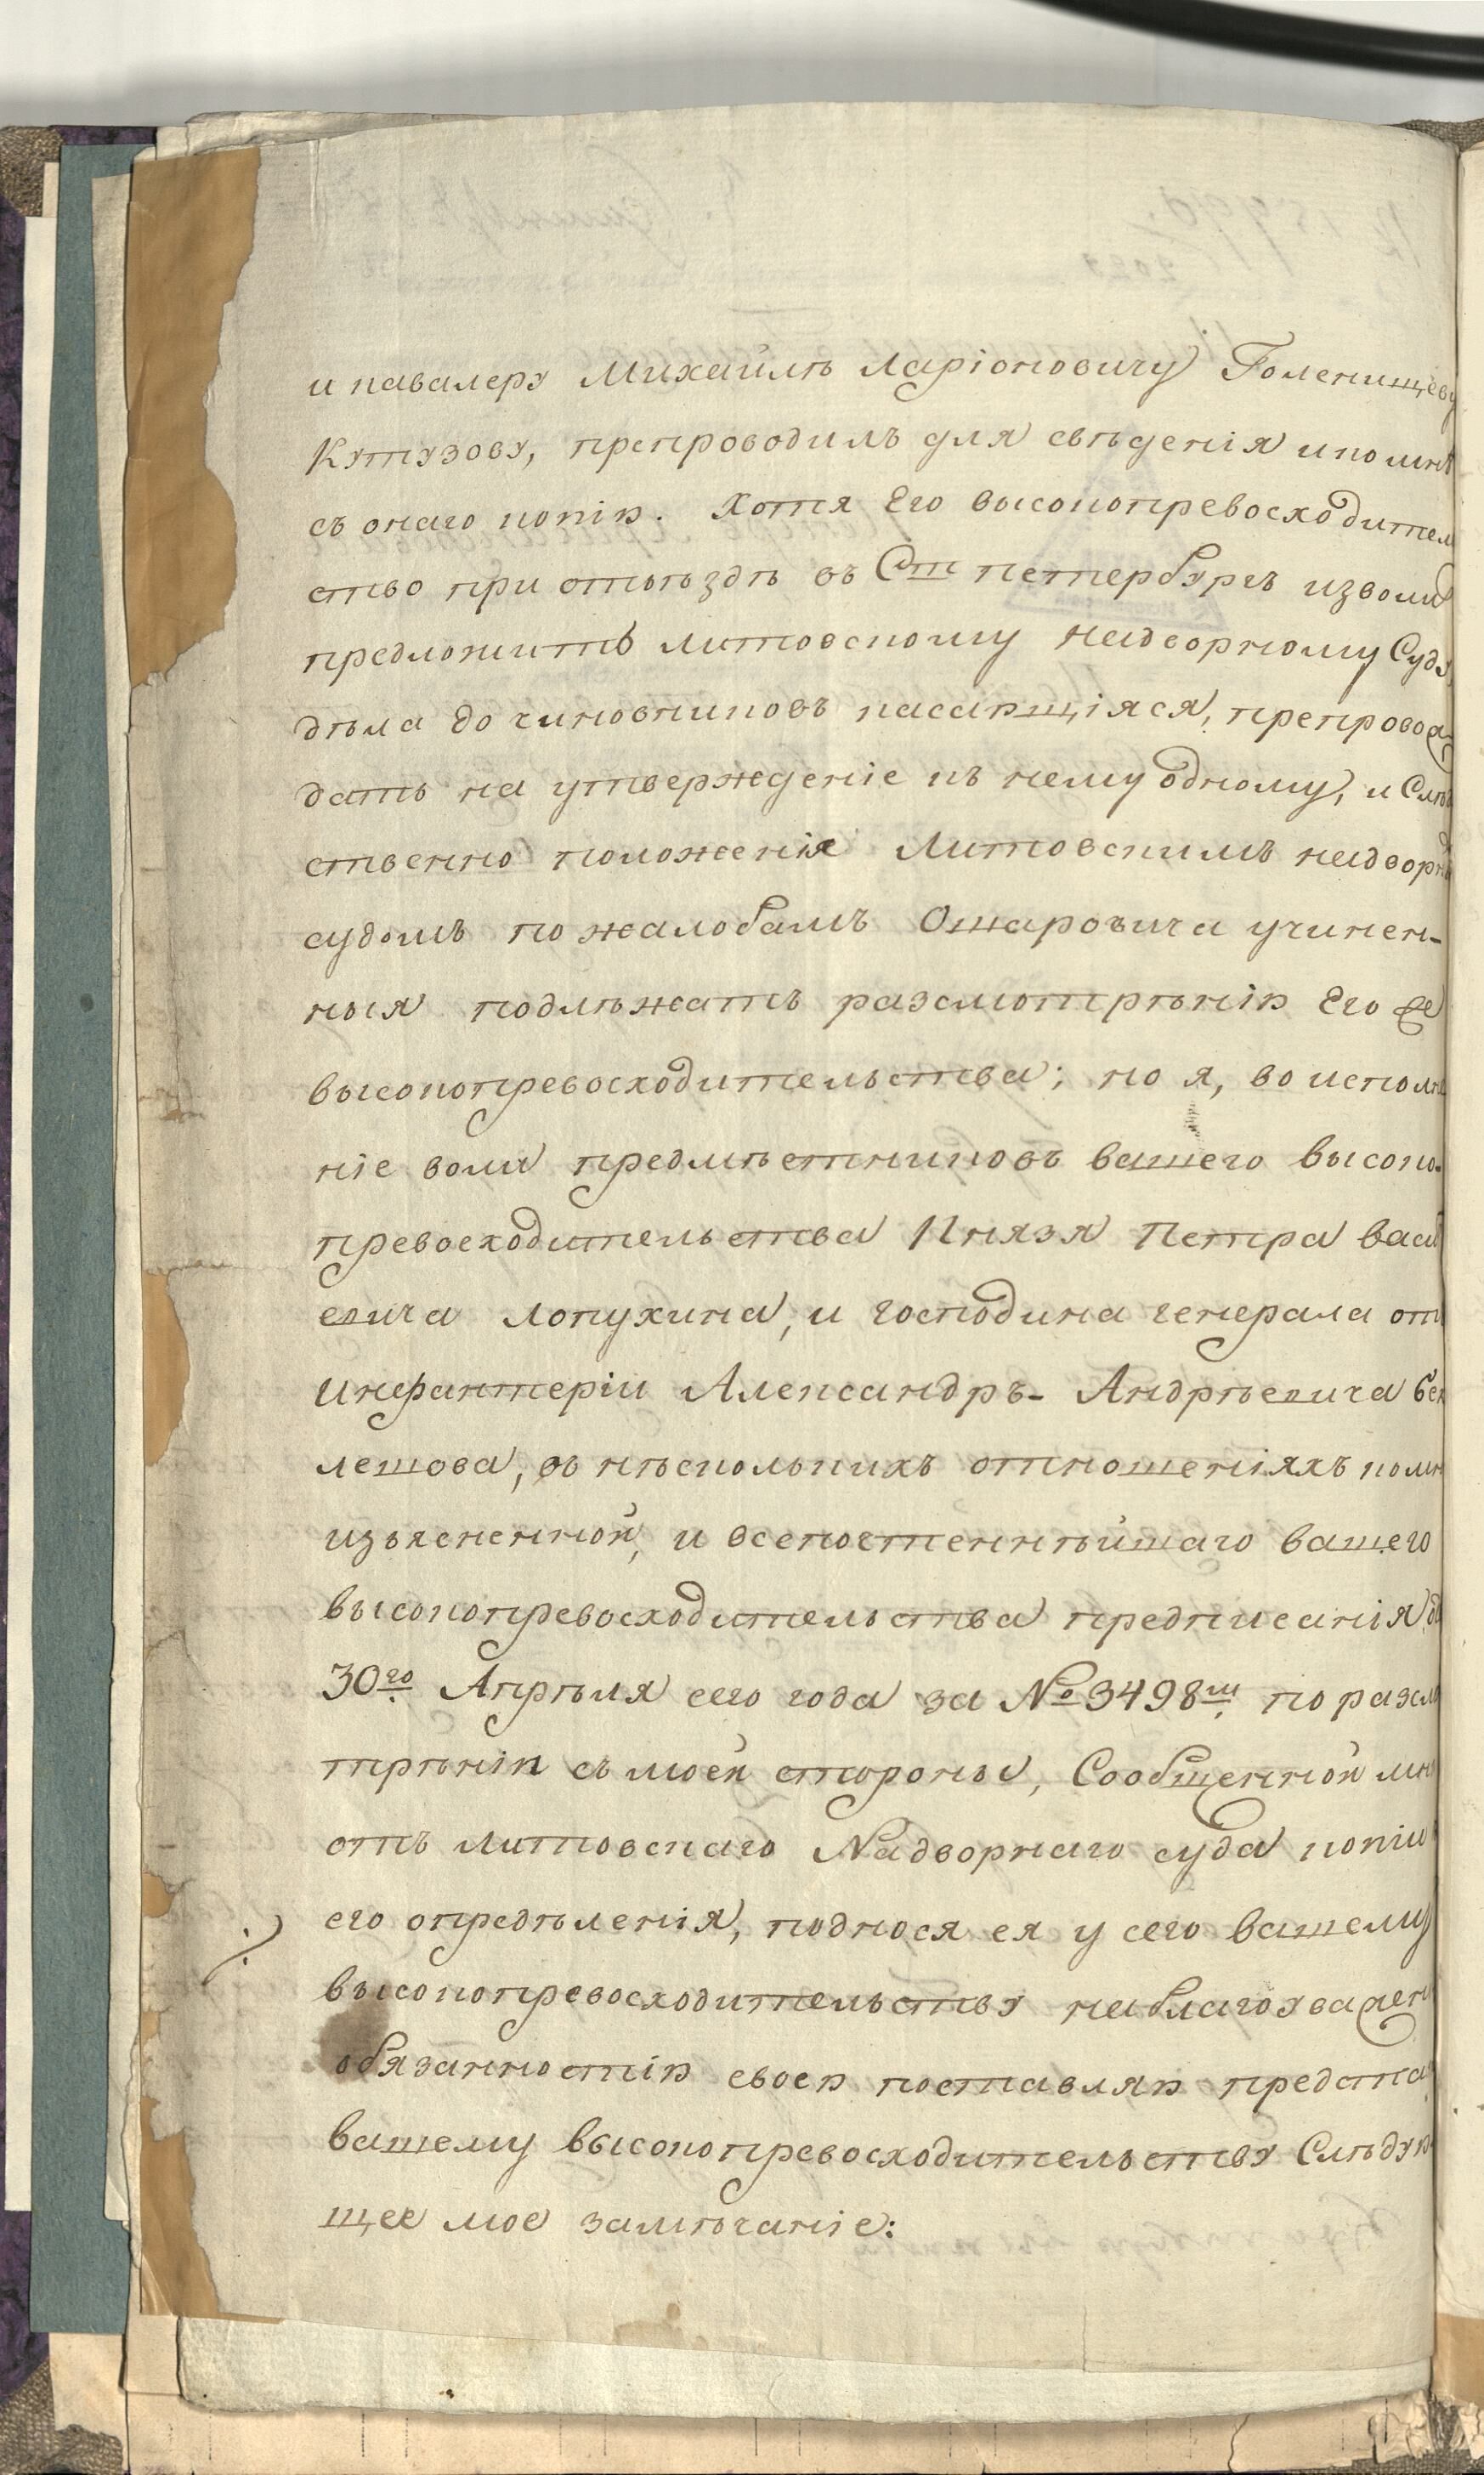 и кавалеру Михайлѣ Ларіоновичу Голенищеву
Кутузову, препроводилъ для свѣденія и ко мнѣ
съ онаго копію. Хотя Его высокопревосходител
ство при отъѣздѣ въ Ст петербургъ изволил
предложить литовскому надворному Суду,
дѣла до чиновниковъ касающіяся, препровож
дать на утвержденіе къ нему одному, и Слѣд
ственно положенія Литовскимъ надворны
судомъ по жалобамъ Ошаровича учинен-
ныя подлѣжатъ разсмотрѣнію Его же
высокопревосходительства; но я, во исполне
ніе воли предмѣстниковъ вашего высоко-
превосходительства Князя Петра васил
евича Лопухина, и господина генерала отъ
Инфантеріи Александръ- Андрѣевича бек
лешова, въ нѣсколькихъ отношеніяхъ ко мн
изъясненной, и всепочтеннѣйшаго вашего
высокопревосходительства предписанія
30го Апрѣля сего года за № 3498м по разсмо
трѣнію съ моей стороны, Сообщенной мнѣ
отъ литовскаго Надворнаго суда копіи
его опредѣленія, поднося ея у сего вашему
высокопревосходительству на благоуважен
обязанностію своею поставляю предста
вашему высокопревосходительству Слѣдую
щее мое замѣчаніе: